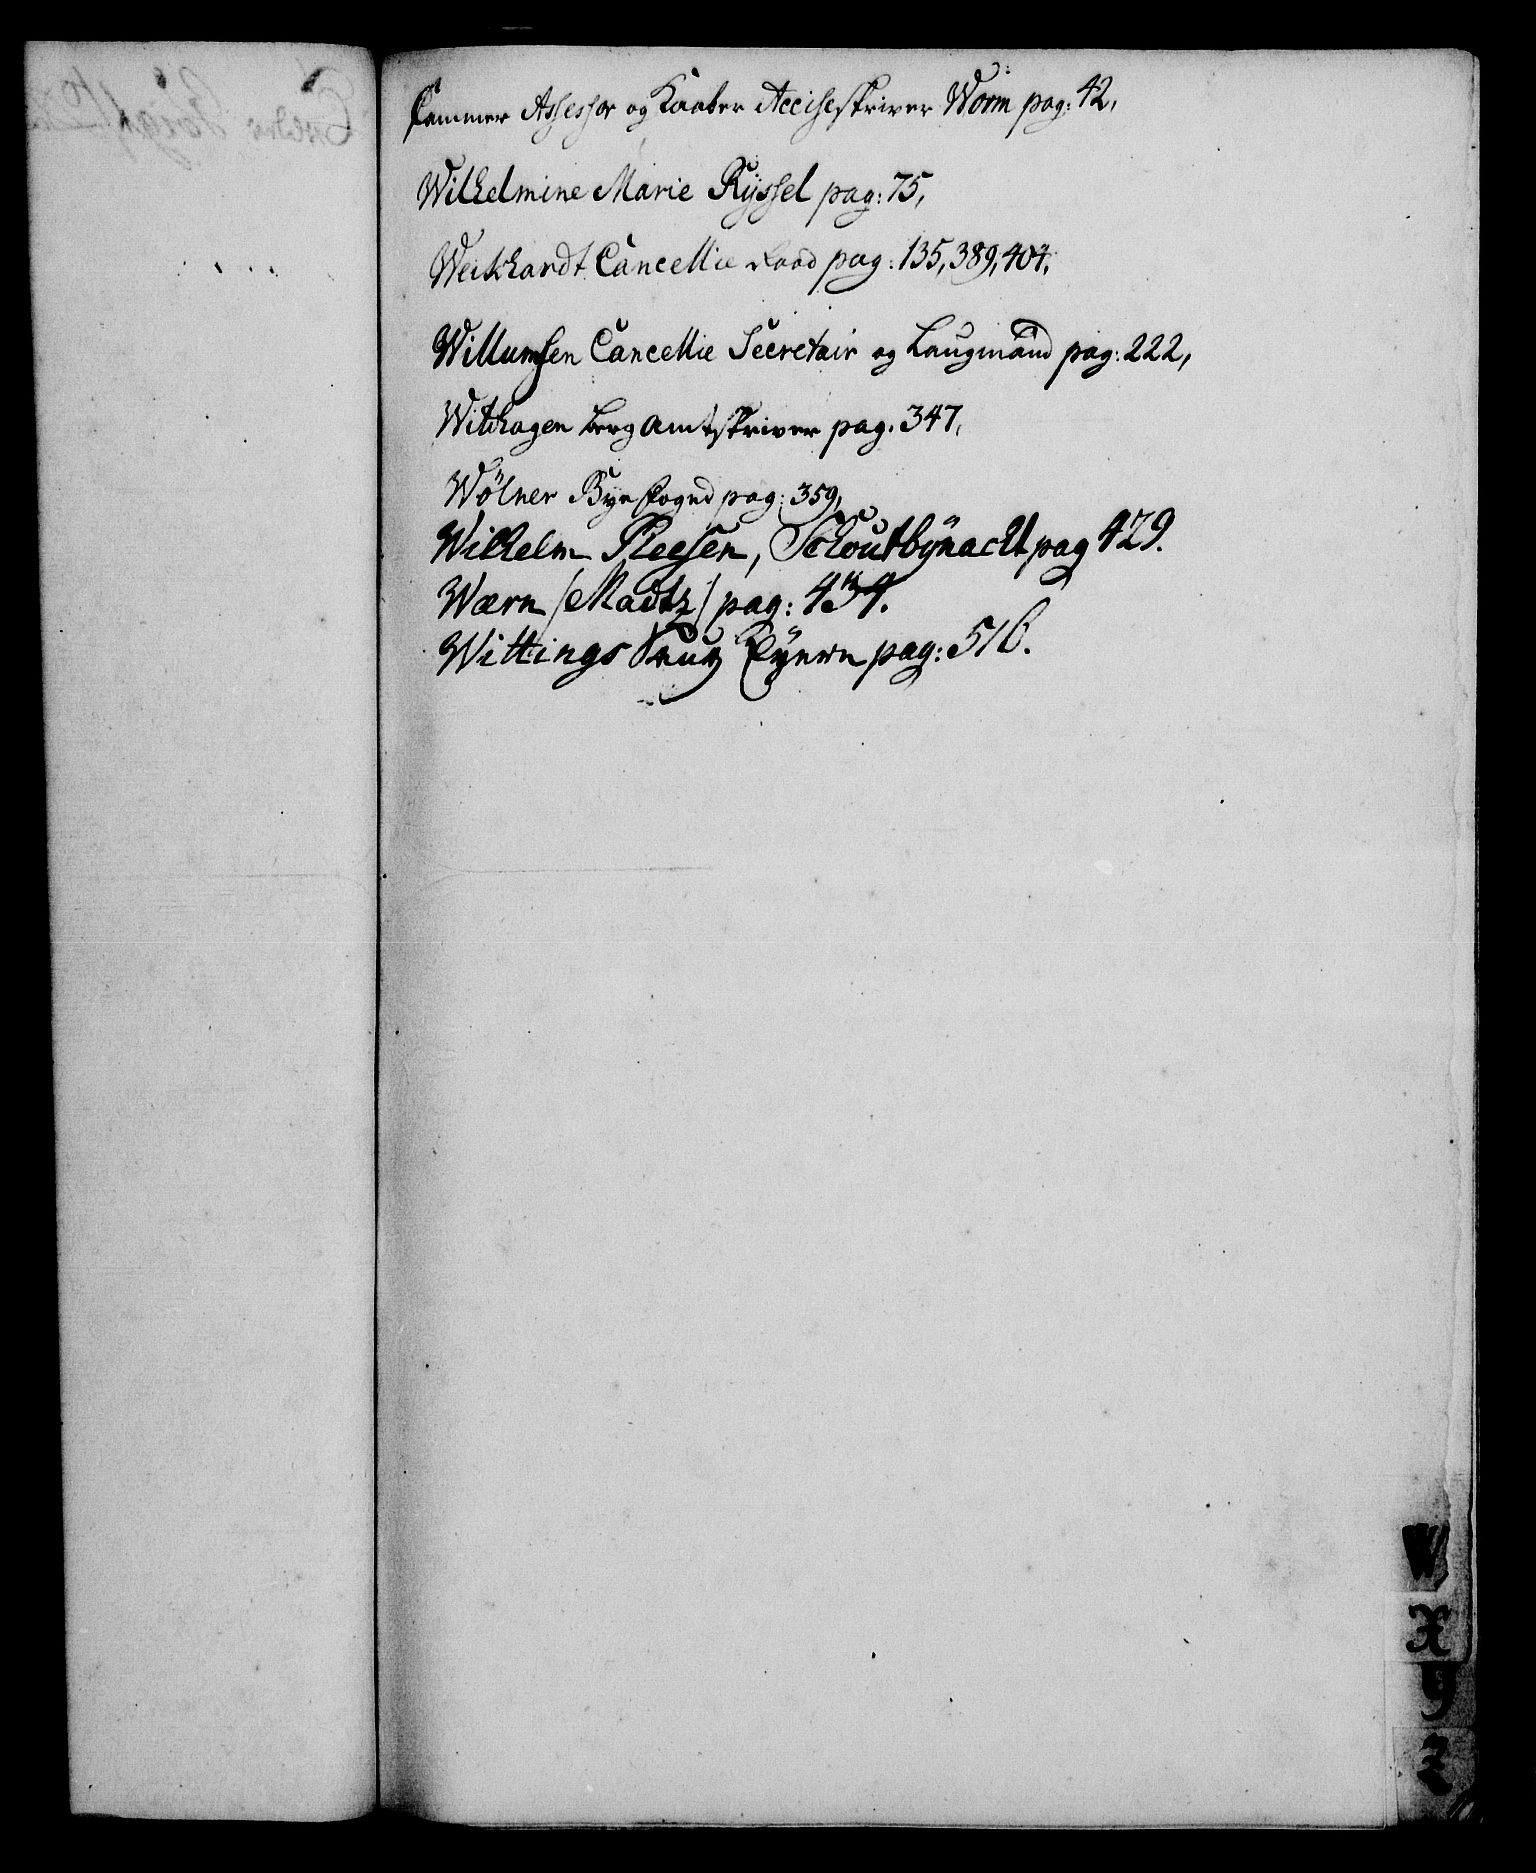 Cammer Assessor og Kaaber Acciseskriver Worm pag: 42,
Wilhelmine Marie Ryssel pag: 75,
Weikhardt Cancellie Raad pag: 135, 389, 404,
Willumsen Cancellie Secretair og Laugmand pag: 222,
Withagen Berg amtskriver pag. 347,
Wölner Bye foged pag: 359,
Wilhelm Reesen, Schoutbÿnacht pag 429.
Wærn /Madtz/ pag: 434.
Wittings pag: 516.
W
X
y
Z